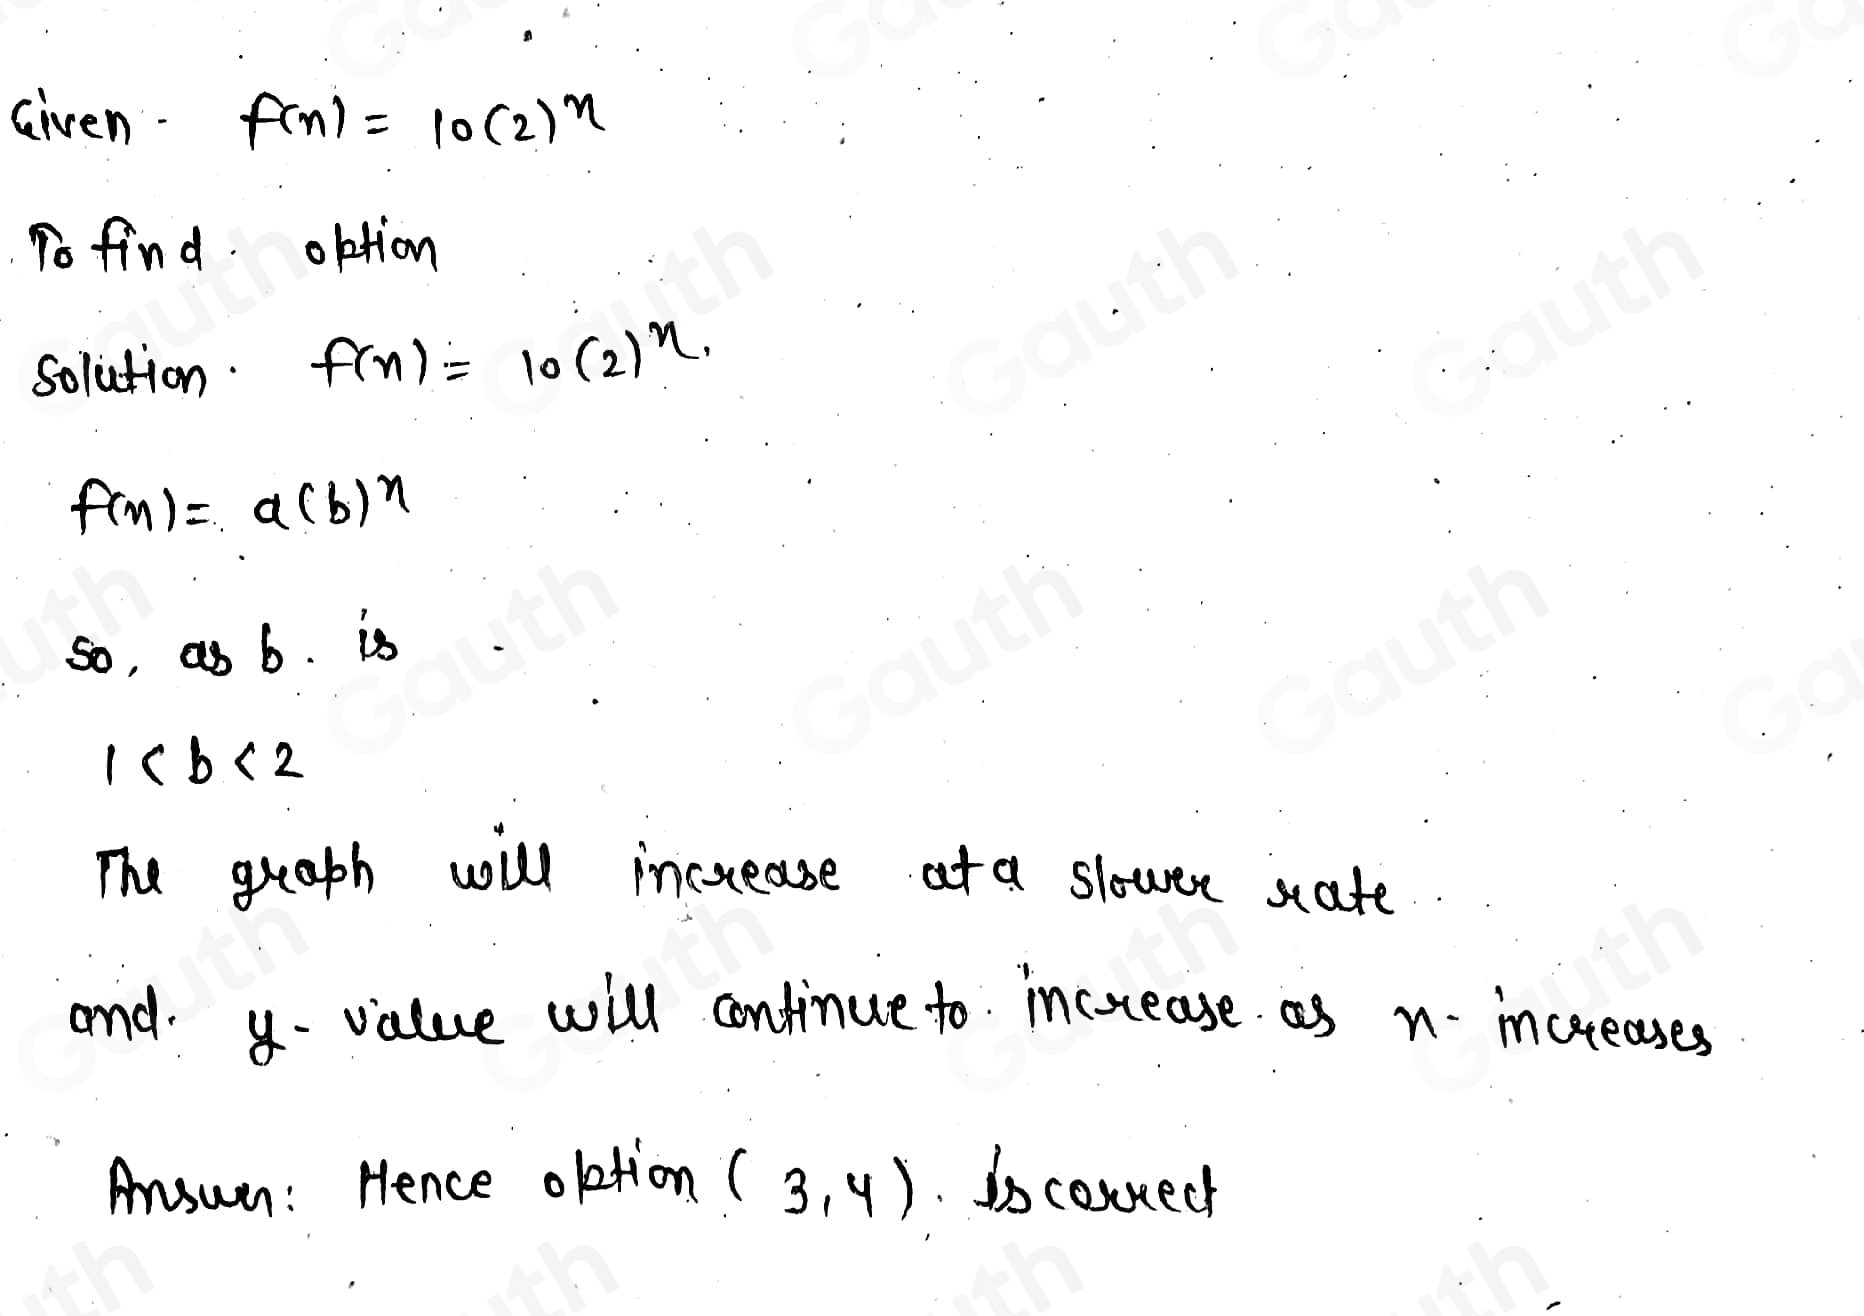 Given - f(n) = 10(2)^n
To find. option
Solution. f(n) = 10(2)^n.
f(n) = a(b)^n
So, as b. is
1 < b < 2
The graph will increase at a slower rate
and. y - value will continue to increase as n - increases
Answer: Hence option (3,4). Is correct